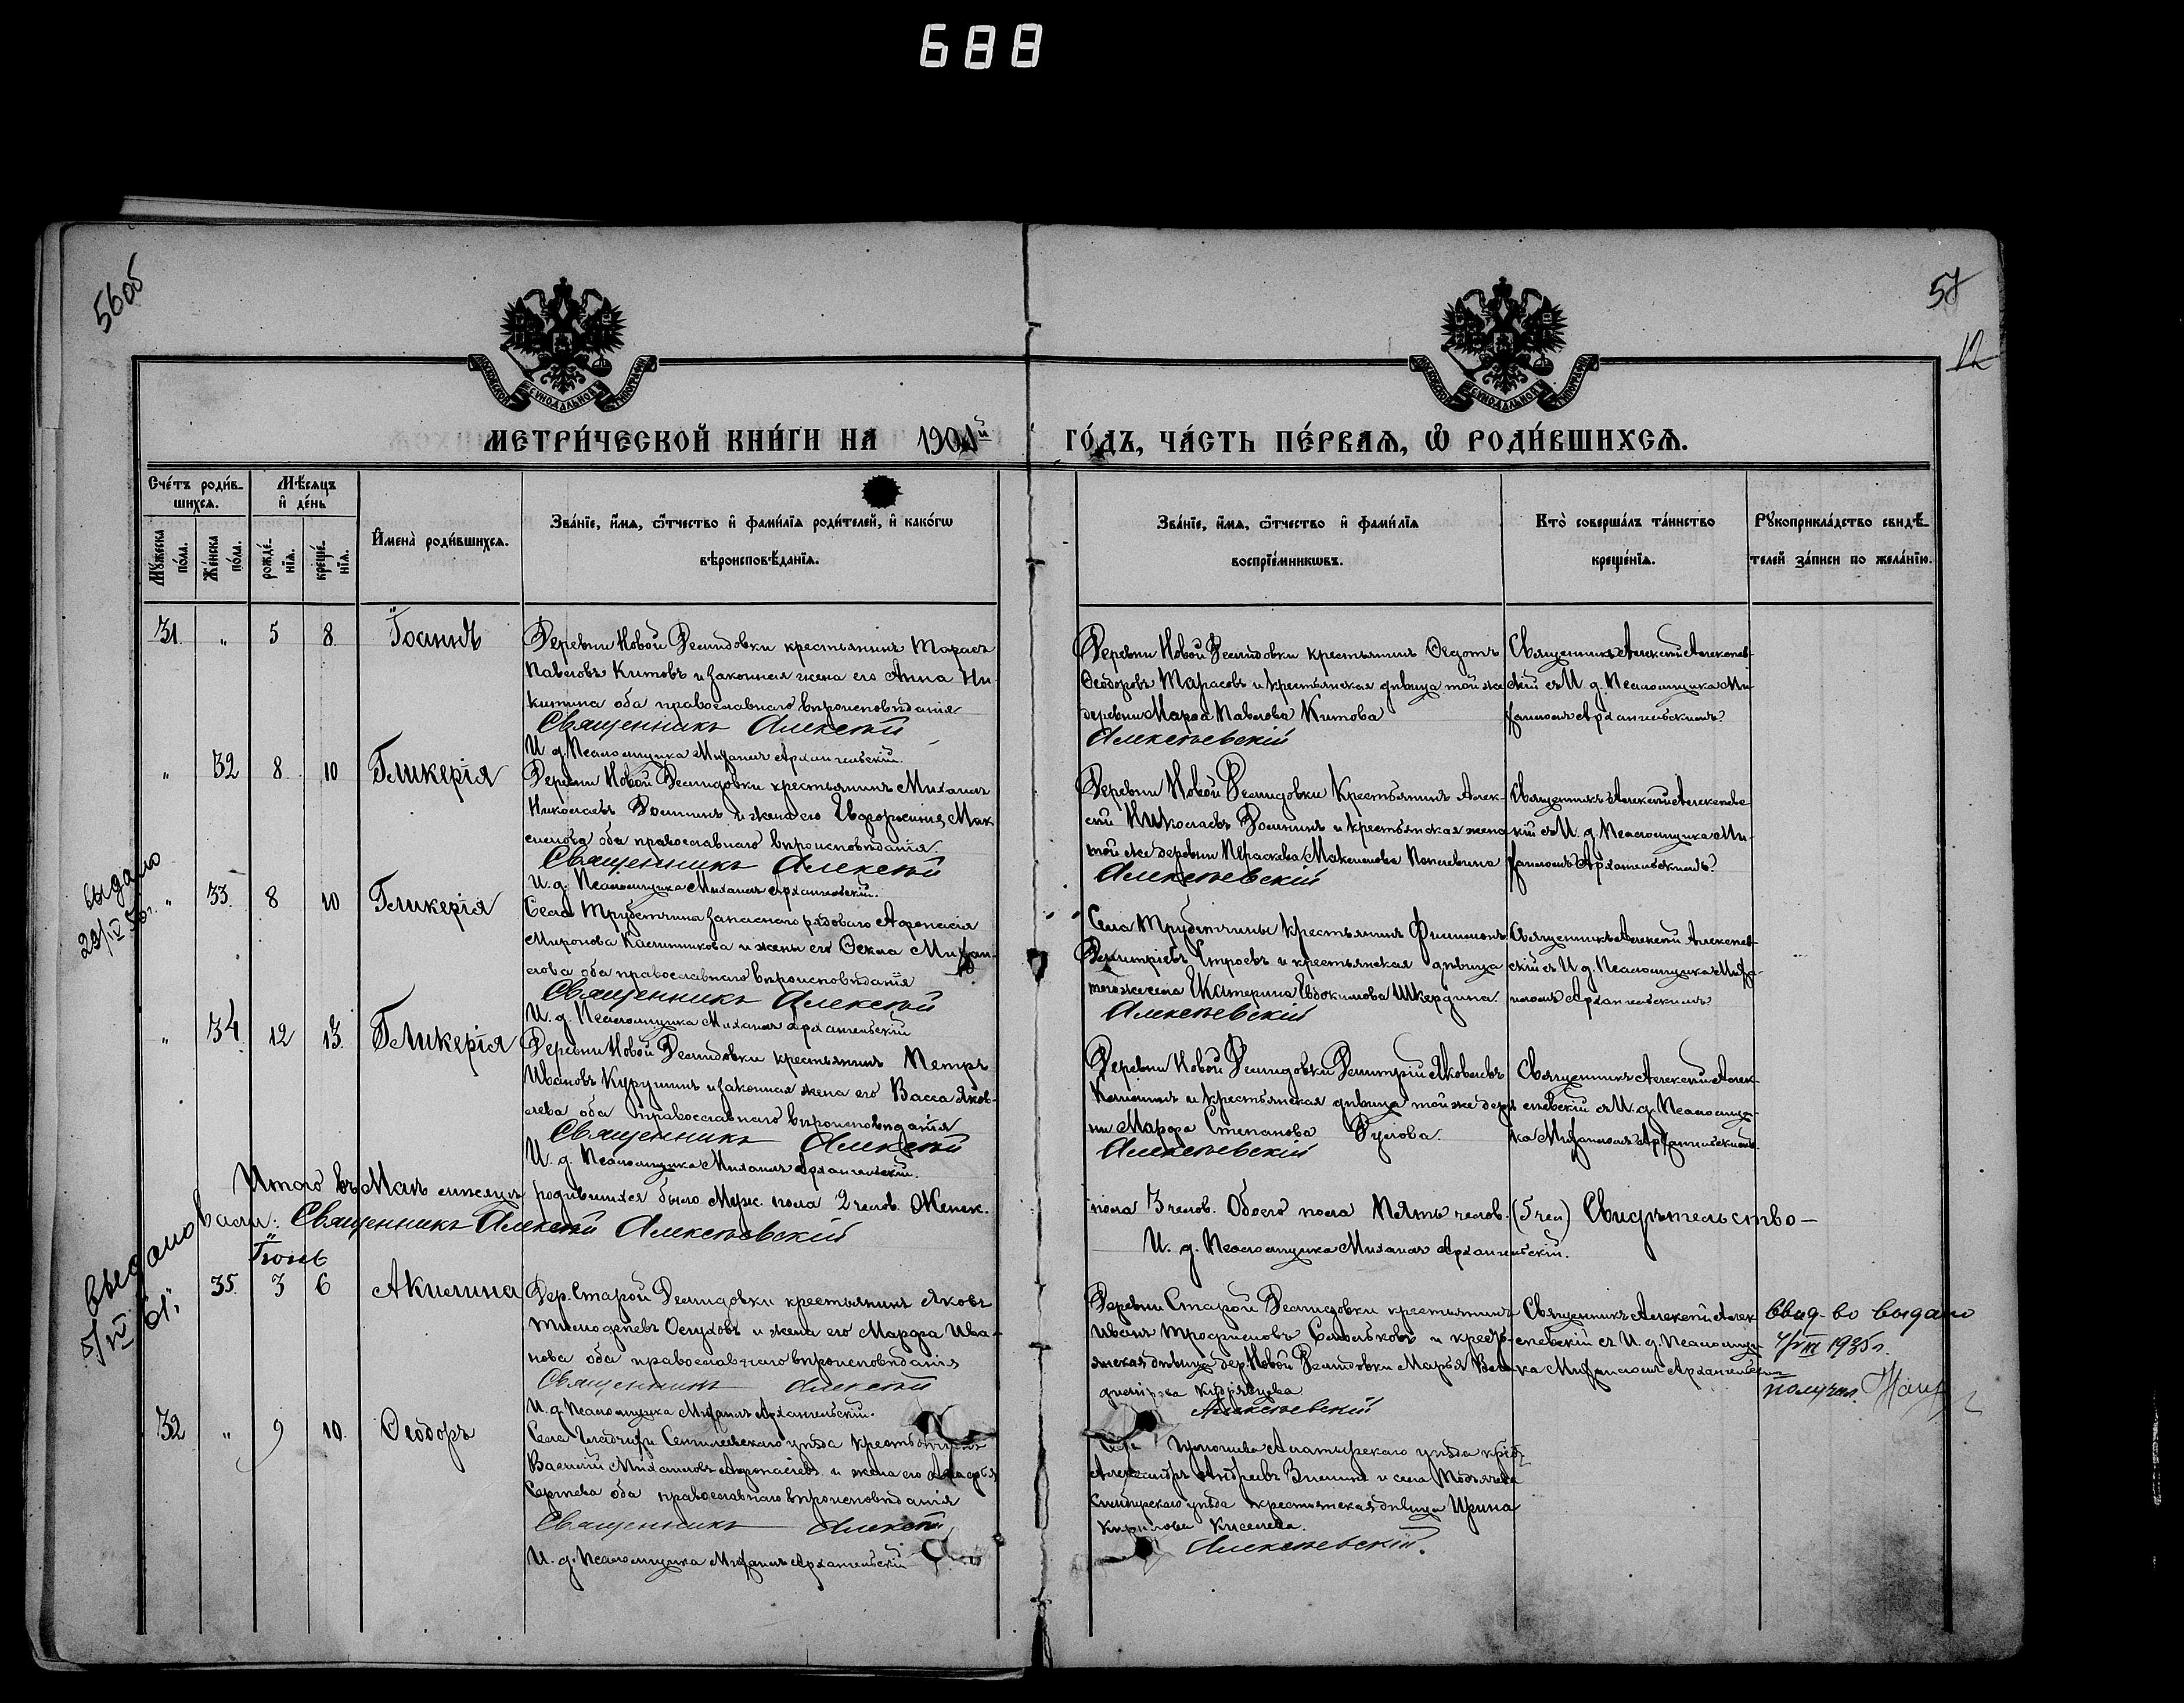 688
56об
57
12
МЕТРИ́ЧЕСКОЙ КНИ́ГИ НА 1901й ГО́ДЪ, ЧА́СТЬ ПЕ́РВАѦ, Ѿ РОДИ́ВШИХСѦ.
Сче́тъ роди́вшихсѧ.
Мѣ́сѧцъ и҆ де́нь
Мꙋ́жеска по́ла.
Же́нска по́ла.
рожде́нїѧ.
креще́нїѧ.
И҆мена̀ роди́вшихсѧ.
Зва́нїе, и҆́мѧ, ѻ҆́тчество и҆ фами́лїѧ роди́телей, и҆ како́гѡ вѣроисповѣ́данїѧ.
Зва́нїе, и҆́мѧ, ѻ҆́тчество и҆ фами́лїѧ воспрїе́мникѡвъ.
Кто̀ соверша́лъ та́инство креще́нїѧ.
Рꙋкоприкла́дство свидѣ́телей за́писи по жела́нїю.
31. " 5 8 Іоаннъ
Деревни Новой Демидовки крестьянинъ Тарасъ
Павловъ Китовъ и законная жена его Анна Ни-
китина оба православнаго вѣроисповѣданія
Священникъ Алексѣй
И. д. Псаломщика Михаилъ Архангельскій.
Деревни Новой Демидовки крестьянинъ Ѳедотъ
Ѳеодоровъ Тарасовъ и крестьянская дѣвица той же
деревни Марѳа Павлова Китова
Алексѣевскій
Священникъ Алексѣй Алексѣев-
скій съ И. д. Псаломщика Ми-
хаиломъ Архангельскимъ
" 32 8 10 Гликерія
Деревни Новой Демидовки крестьянинъ Михаилъ
Николаевъ Зоминъ и жена его Евдокія Мак-
симова оба православнаго вѣроисповѣданія.
Священникъ Алексѣй
И. д. Псаломщика Михаилъ Архангельскій.
Деревни Новой Демидовки Крестьянинъ Алек-
сѣй Николаевъ Зоминъ и крестьянская жена
той же деревни Параскева Максимова
Алексѣевскій
Священникъ Алексѣй Алексѣевс-
кій съ И. д. Псаломщика Ми-
хаиломъ Архангельскимъ
выдано
29/IV 50г.
" 33. 8 10 Гликерія
Села Трубетчина запаснаго рядоваго Аѳанасія
Миронова Калинникова и жены его Ѳекла Михаи-
лова оба православнаго вѣроисповѣданія
Священникъ Алексѣй
И. д. Псаломщика Михаилъ Архангельскій
Села Трубетчины крестьянинъ Филимонъ
Димитріевъ и крестьянская дѣвица
того же села Екатерина Евдокимова Шкердина.
Алексѣевскій
Священникъ Алексѣй Алексѣев-
скій съ И. д. Псаломщика Миха-
иломъ Архангельскимъ
" 34. 12 13. Гликерія
Деревни Новой Демидовки крестьянинъ Петръ
Ивановъ Курушинъ и законная жена его Васса Яков-
лева оба православнаго вѣроисповѣданія
Священникъ Алексѣй
И. д. Псаломщика Михаилъ Архангельскій.
Деревни Новой Демидовки Димитрій Яковлевъ
и крестьянская дѣвица той же дерев-
ни Марѳа Степанова
Алексѣевскій
Священникъ Алексѣй Алек-
сѣевскій съ И. д. Псаломщи-
ка Михаиломъ Архангельскимъ
Итого въ Маѣ мѣсяцѣ родившихся было Муж. пола 2 челов. Женск. пола 3 челов. Обоего пола Пять челов. (5 чел) Свидѣтельство-
вали: Священникъ Алексѣй Алексѣевскій
И. д. Псаломщика Михаилъ Архангельскій.
Іюнь
выдано
5/IV 61г.
" 35. 3 6 Акилина
Дер. Старой Демидовки крестьянинъ Яковъ
Тимоѳеевъ и жена его Марѳа Ива-
нова оба православнаго вѣроисповѣданія
Священникъ Алексѣй
И. д. Псаломщика Михаилъ Архангельскій.
Деревни Старой Демидовки крестьянинъ
Иванъ Трофимовъ и кресть-
янская дѣвица дер. Новой Демидовки Марья
Кудрявцева
Алексѣевскій
Священникъ Алексѣй Алек-
сѣевскій съ И. д. Псаломщи-
ка Михаиломъ Архангельскимъ
Свид-во выдано
4/VIII 1935г.
получил
32 " 9 10. Ѳеодоръ
Села Сенгилеевскаго уѣзда крестьянинъ
Василій Михаиловъ Аѳанасьевъ и жена его
Сергѣева оба православнаго вѣроисповѣданія
Священникъ Алексѣй
И. д. Псаломщика Михаилъ Архангельскій
Алатырскаго уѣзда
Александръ Андреевъ и села
Симбирскаго уѣзда крестьянская дѣвица Ирина
Кирилова Киселева.
Алексѣевскій.